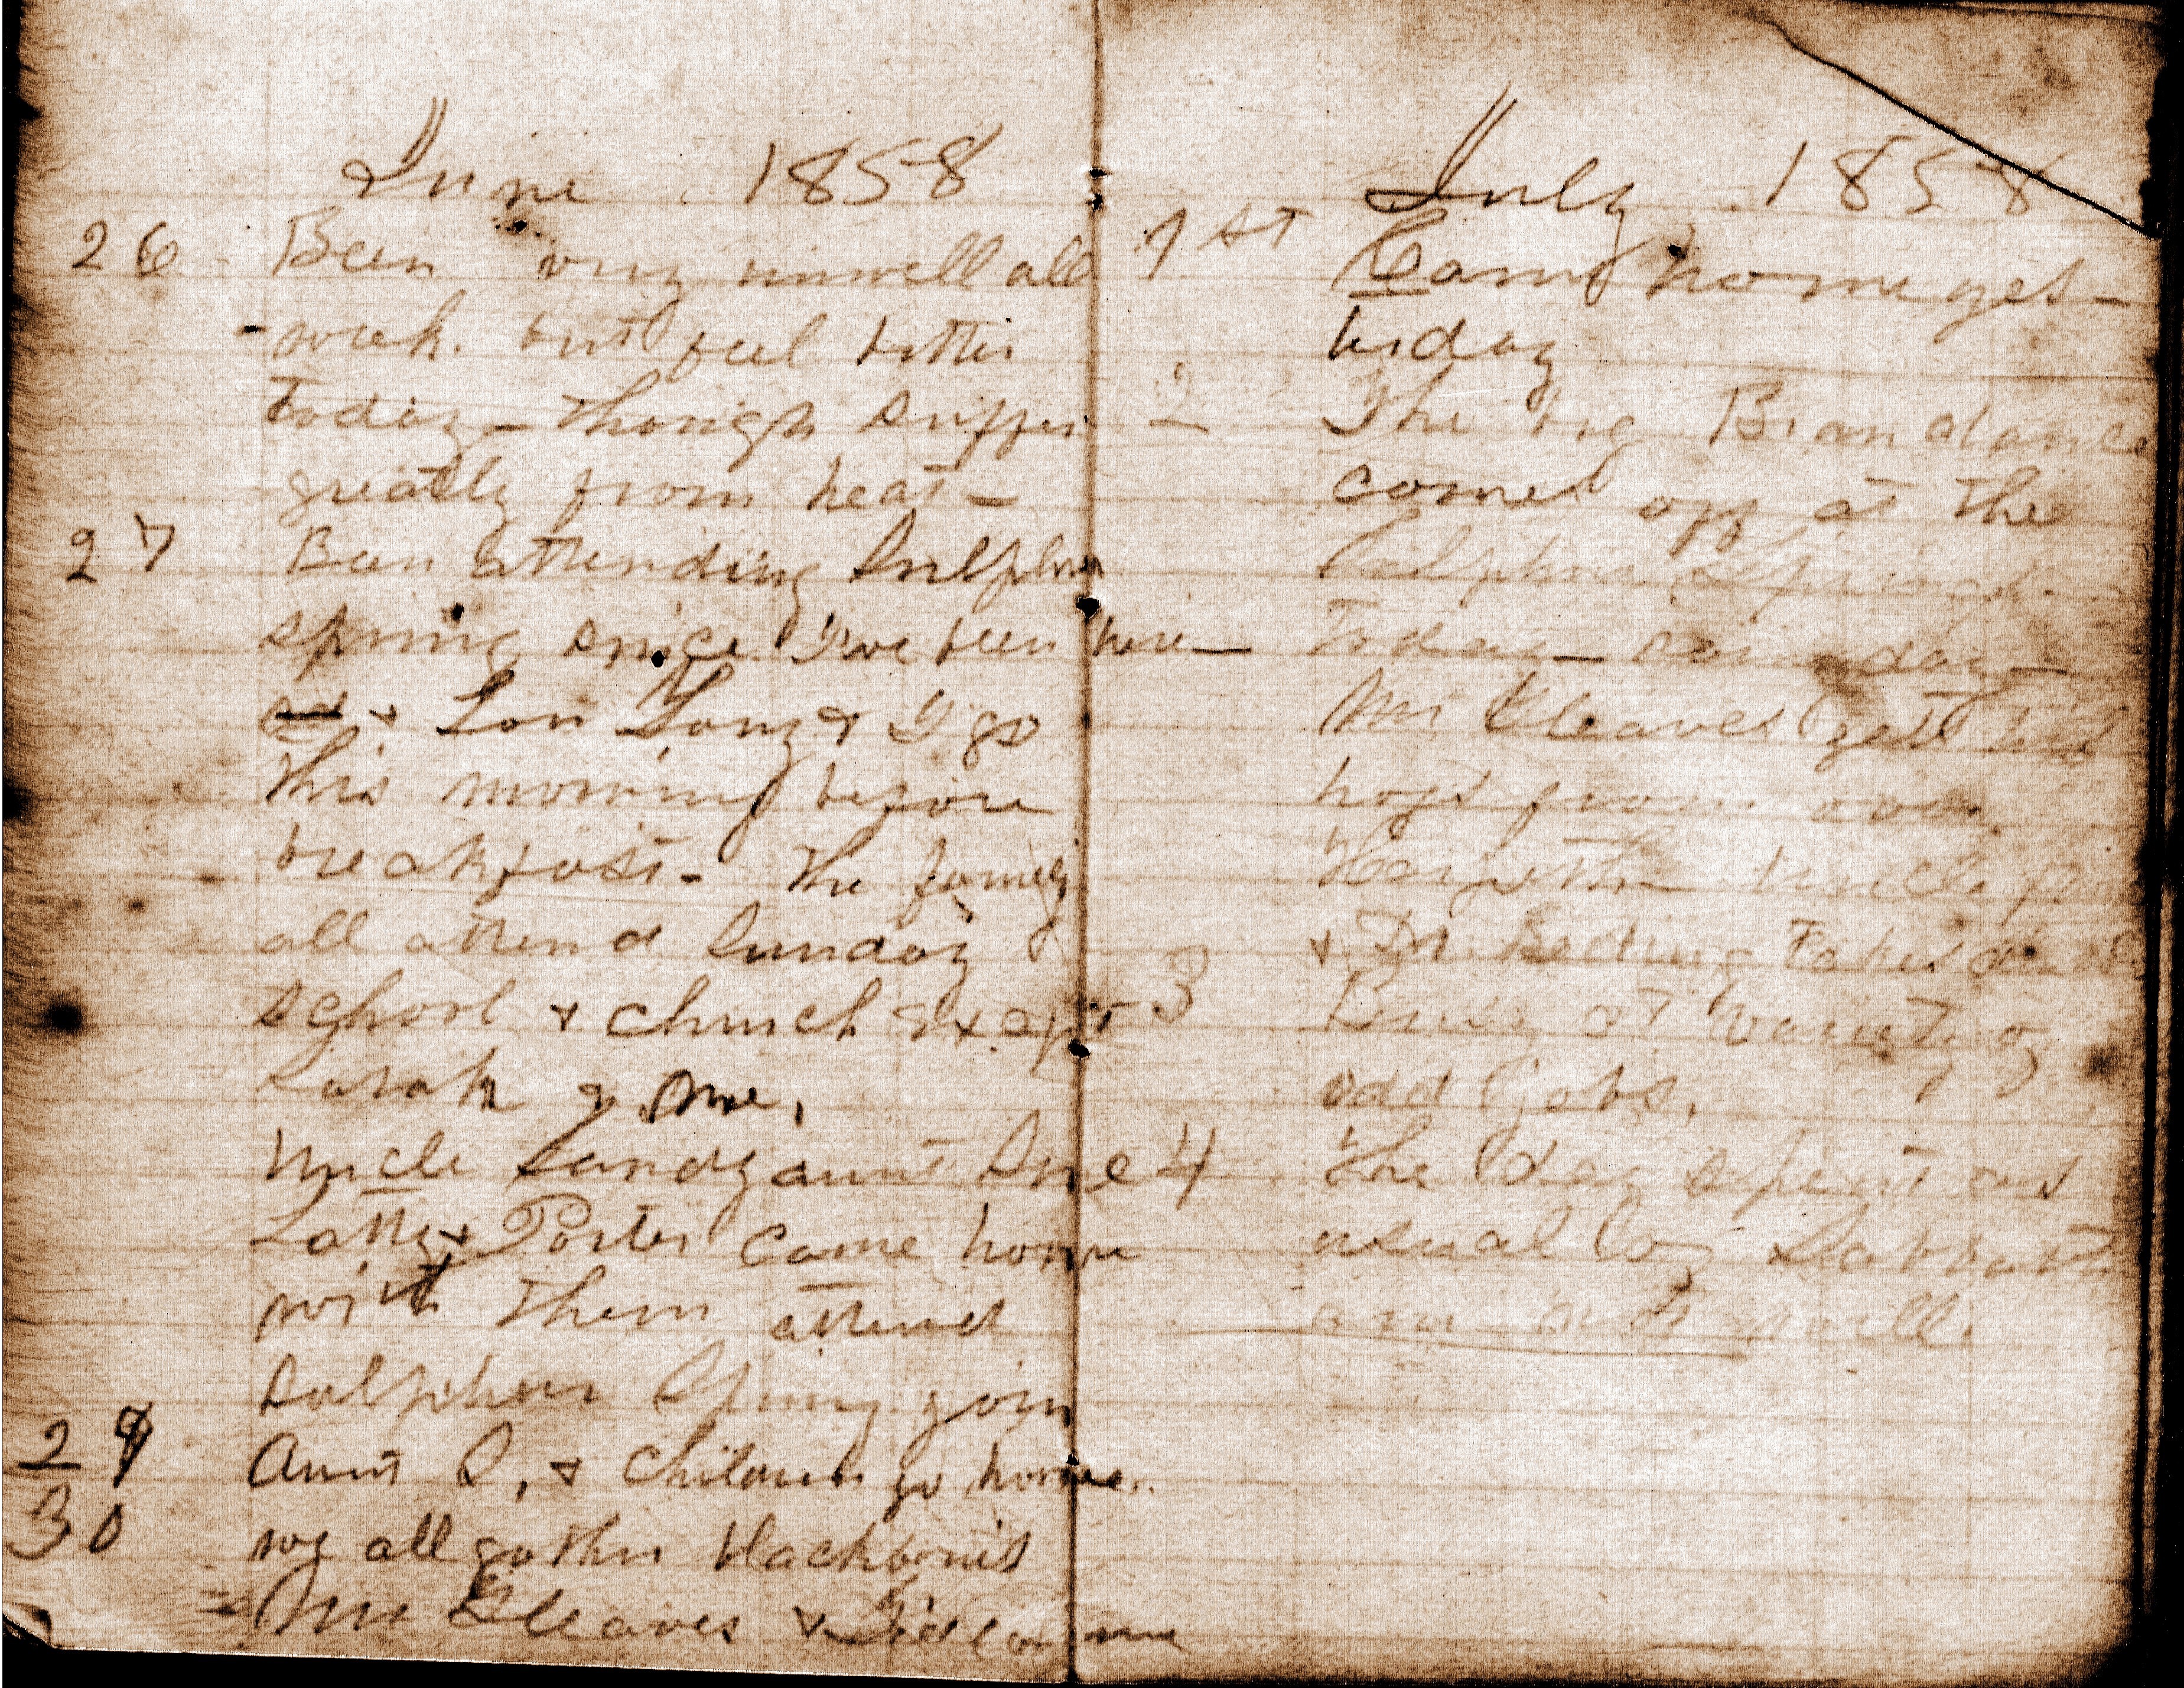 June 1858
26 Been very unwell all
week. but feel better
today - though suffer
greatly from heat -
27 Been attending Sulphur
spring since I've been here -
& Lou Long & I go
this morning before
breakfast - The family
all attend Sunday
School & church except
Sarah & me.
Uncle Sandy aunt Sue
Latty & Porter came home
with them attend
Sulphur Spring
29 Aunt S. & children go home.
30 we all gather blackberries
Mr Cleaves & come
July 1858
1st Came home yes-
terday
2 The big Bran dance
comes off at the
Sulphur Springs
today - day -
Mr Cleaves gets his
hogs from over
Harpeth Uncle
& Dr. takes
3 Busy at variety of
odd jobs.
4 The day spent as
usual by Sabbath
am not well.